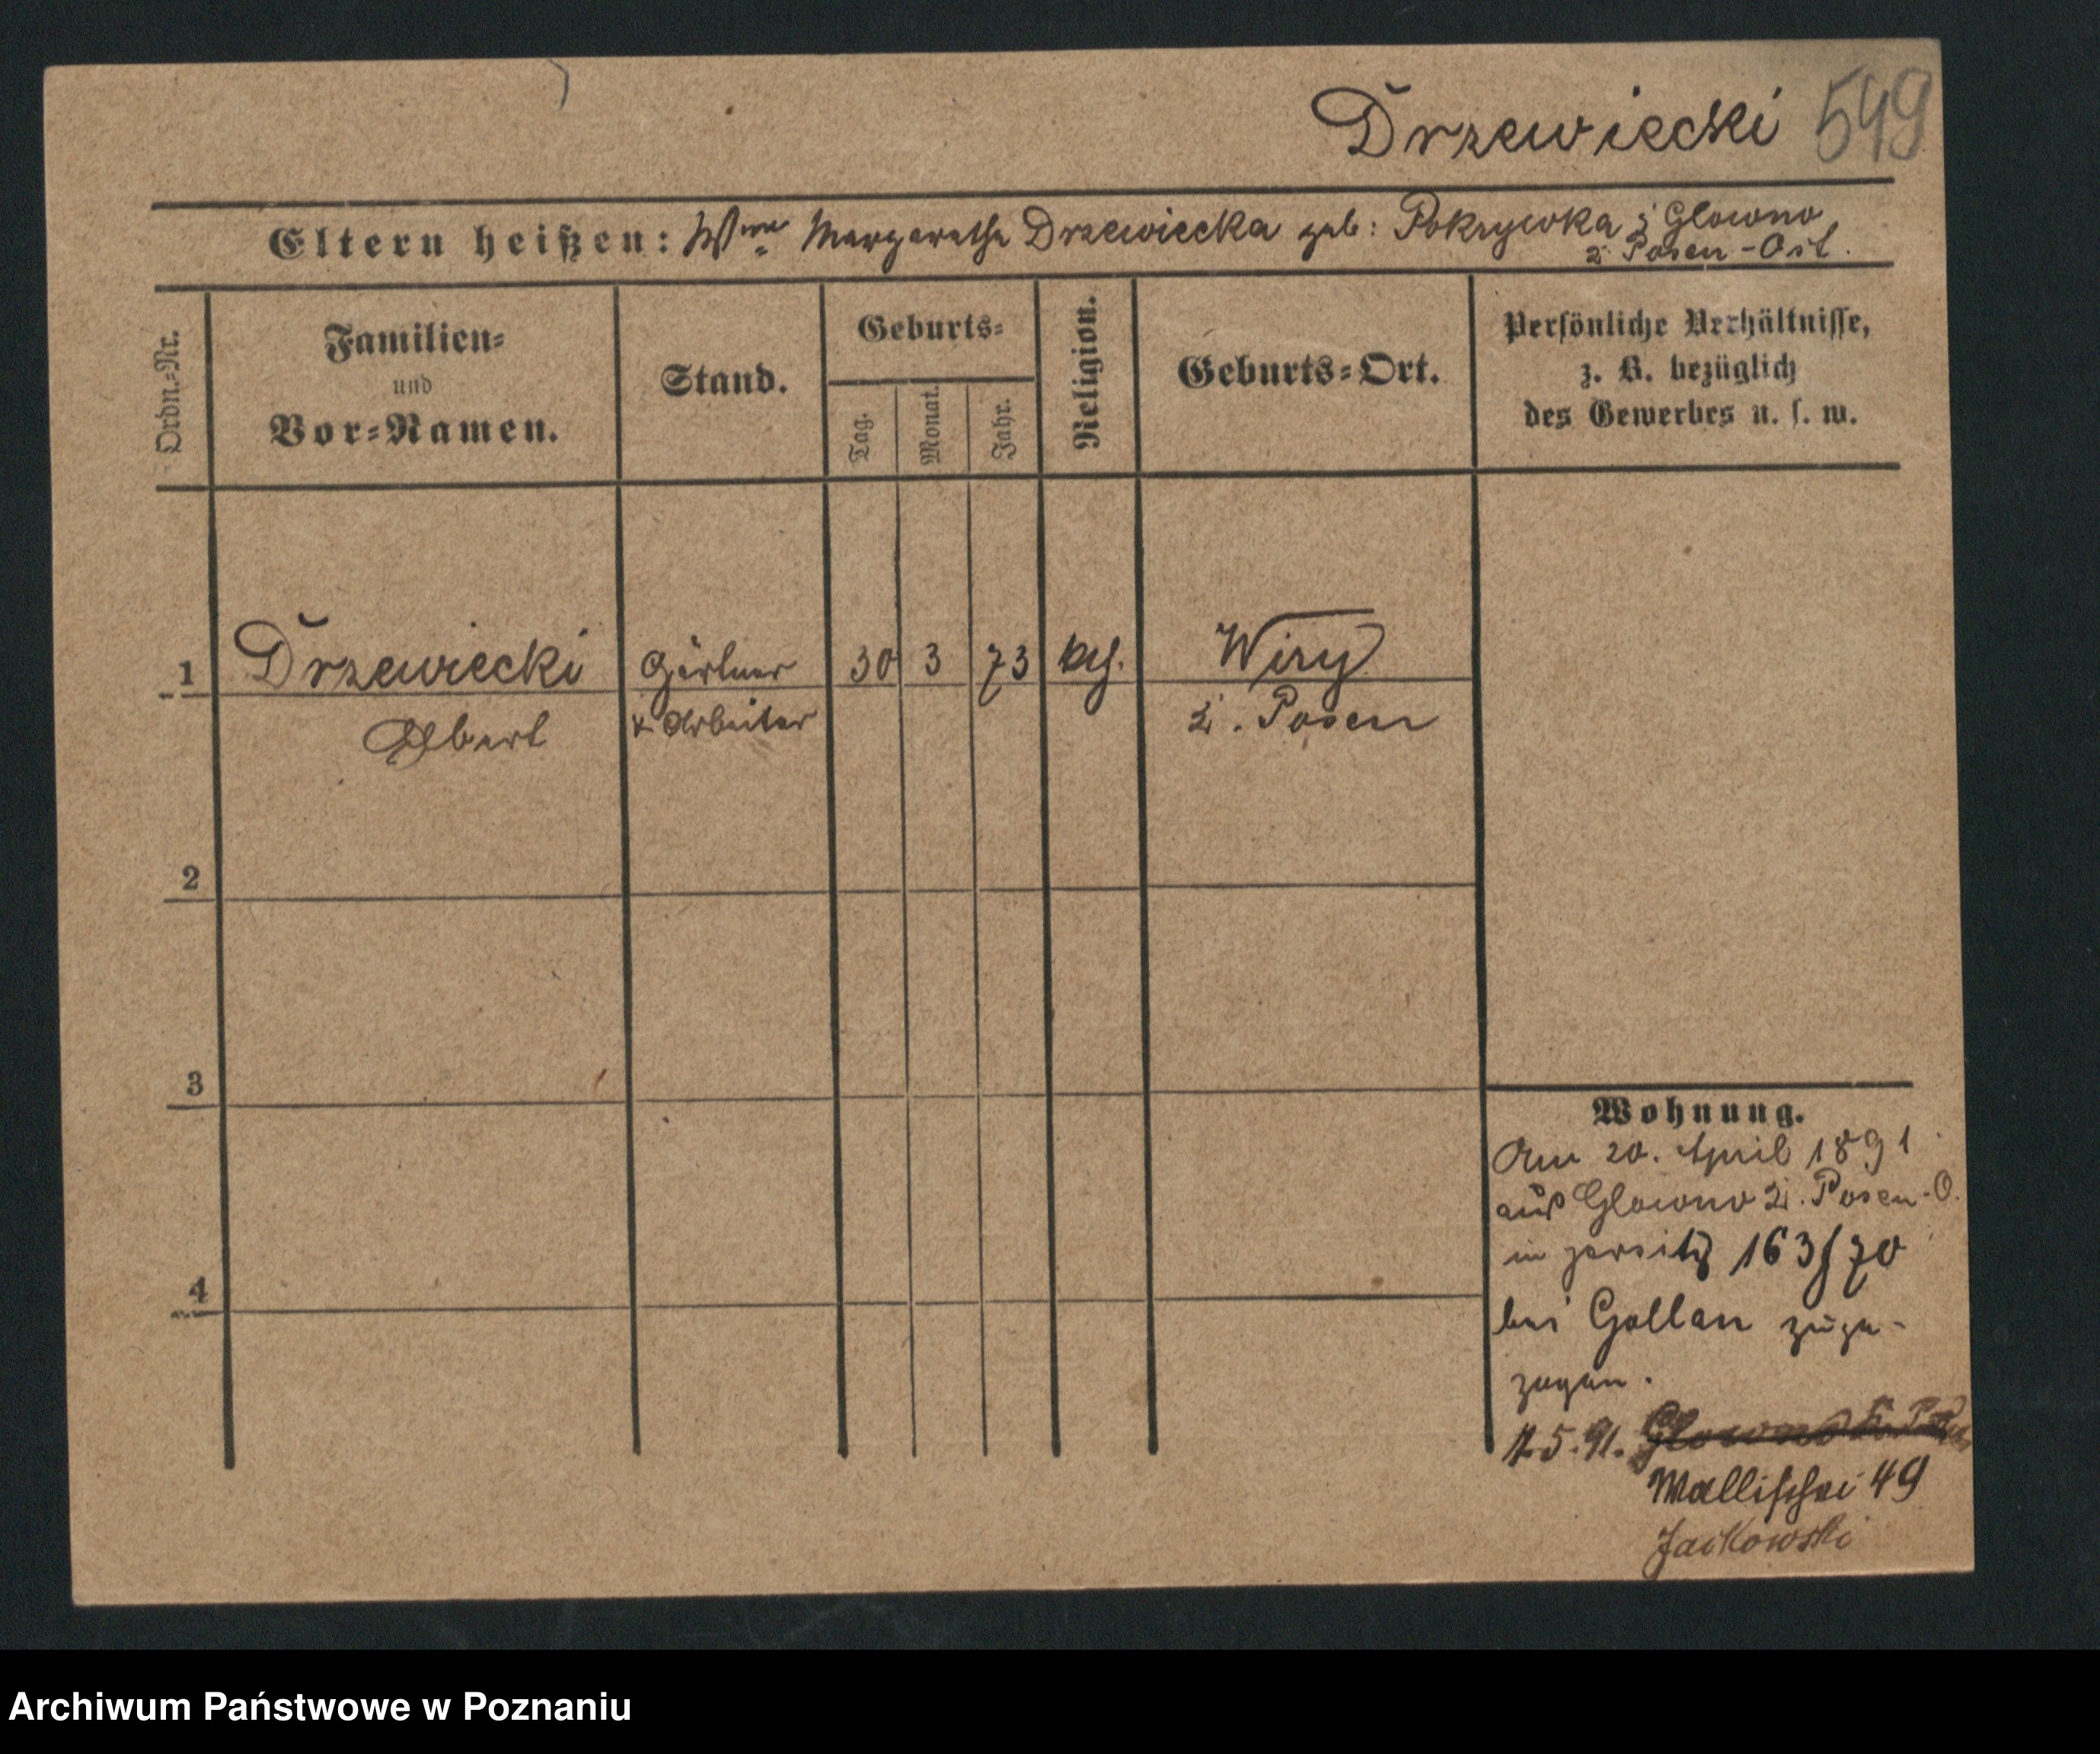 Drzewiecki 549
Eltern heißen: Wwe Margarethe Drzewiecka geb: Pokrywka z. Glowno
2 Posen-Ost.
Ordn.-Nr.
Familien-
und
Vor-Namen.
Stand.
Geburts-
Tag.
Monat.
Jahr.
Religion.
Geburts-Ort.
Persönliche Verhältnisse,
z. B. bezüglich
des Gewerbes u. s. w.
1 Drzewiecki Gärtner 30 3 73 kth. Wiry
Albert & Arbeiter Posen
2
3
4
Wohnung.
Am 20. April 1891
aus Glowno Posen-O.
in Jersitz 163/70
bei Gollan zuge-
zogen.
5.91. Glowno
Wallischei 49
Jackowski
Archiwum Państwowe w Poznaniu